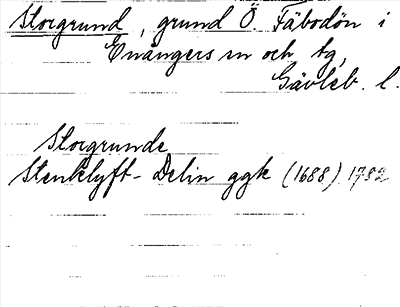 Storgrund, grund Ö. Fäbodön i
Enångers sn och tg,
Gävleb. l.
Storgrunde
Stenklyft- Delin ggk (1688) 1782